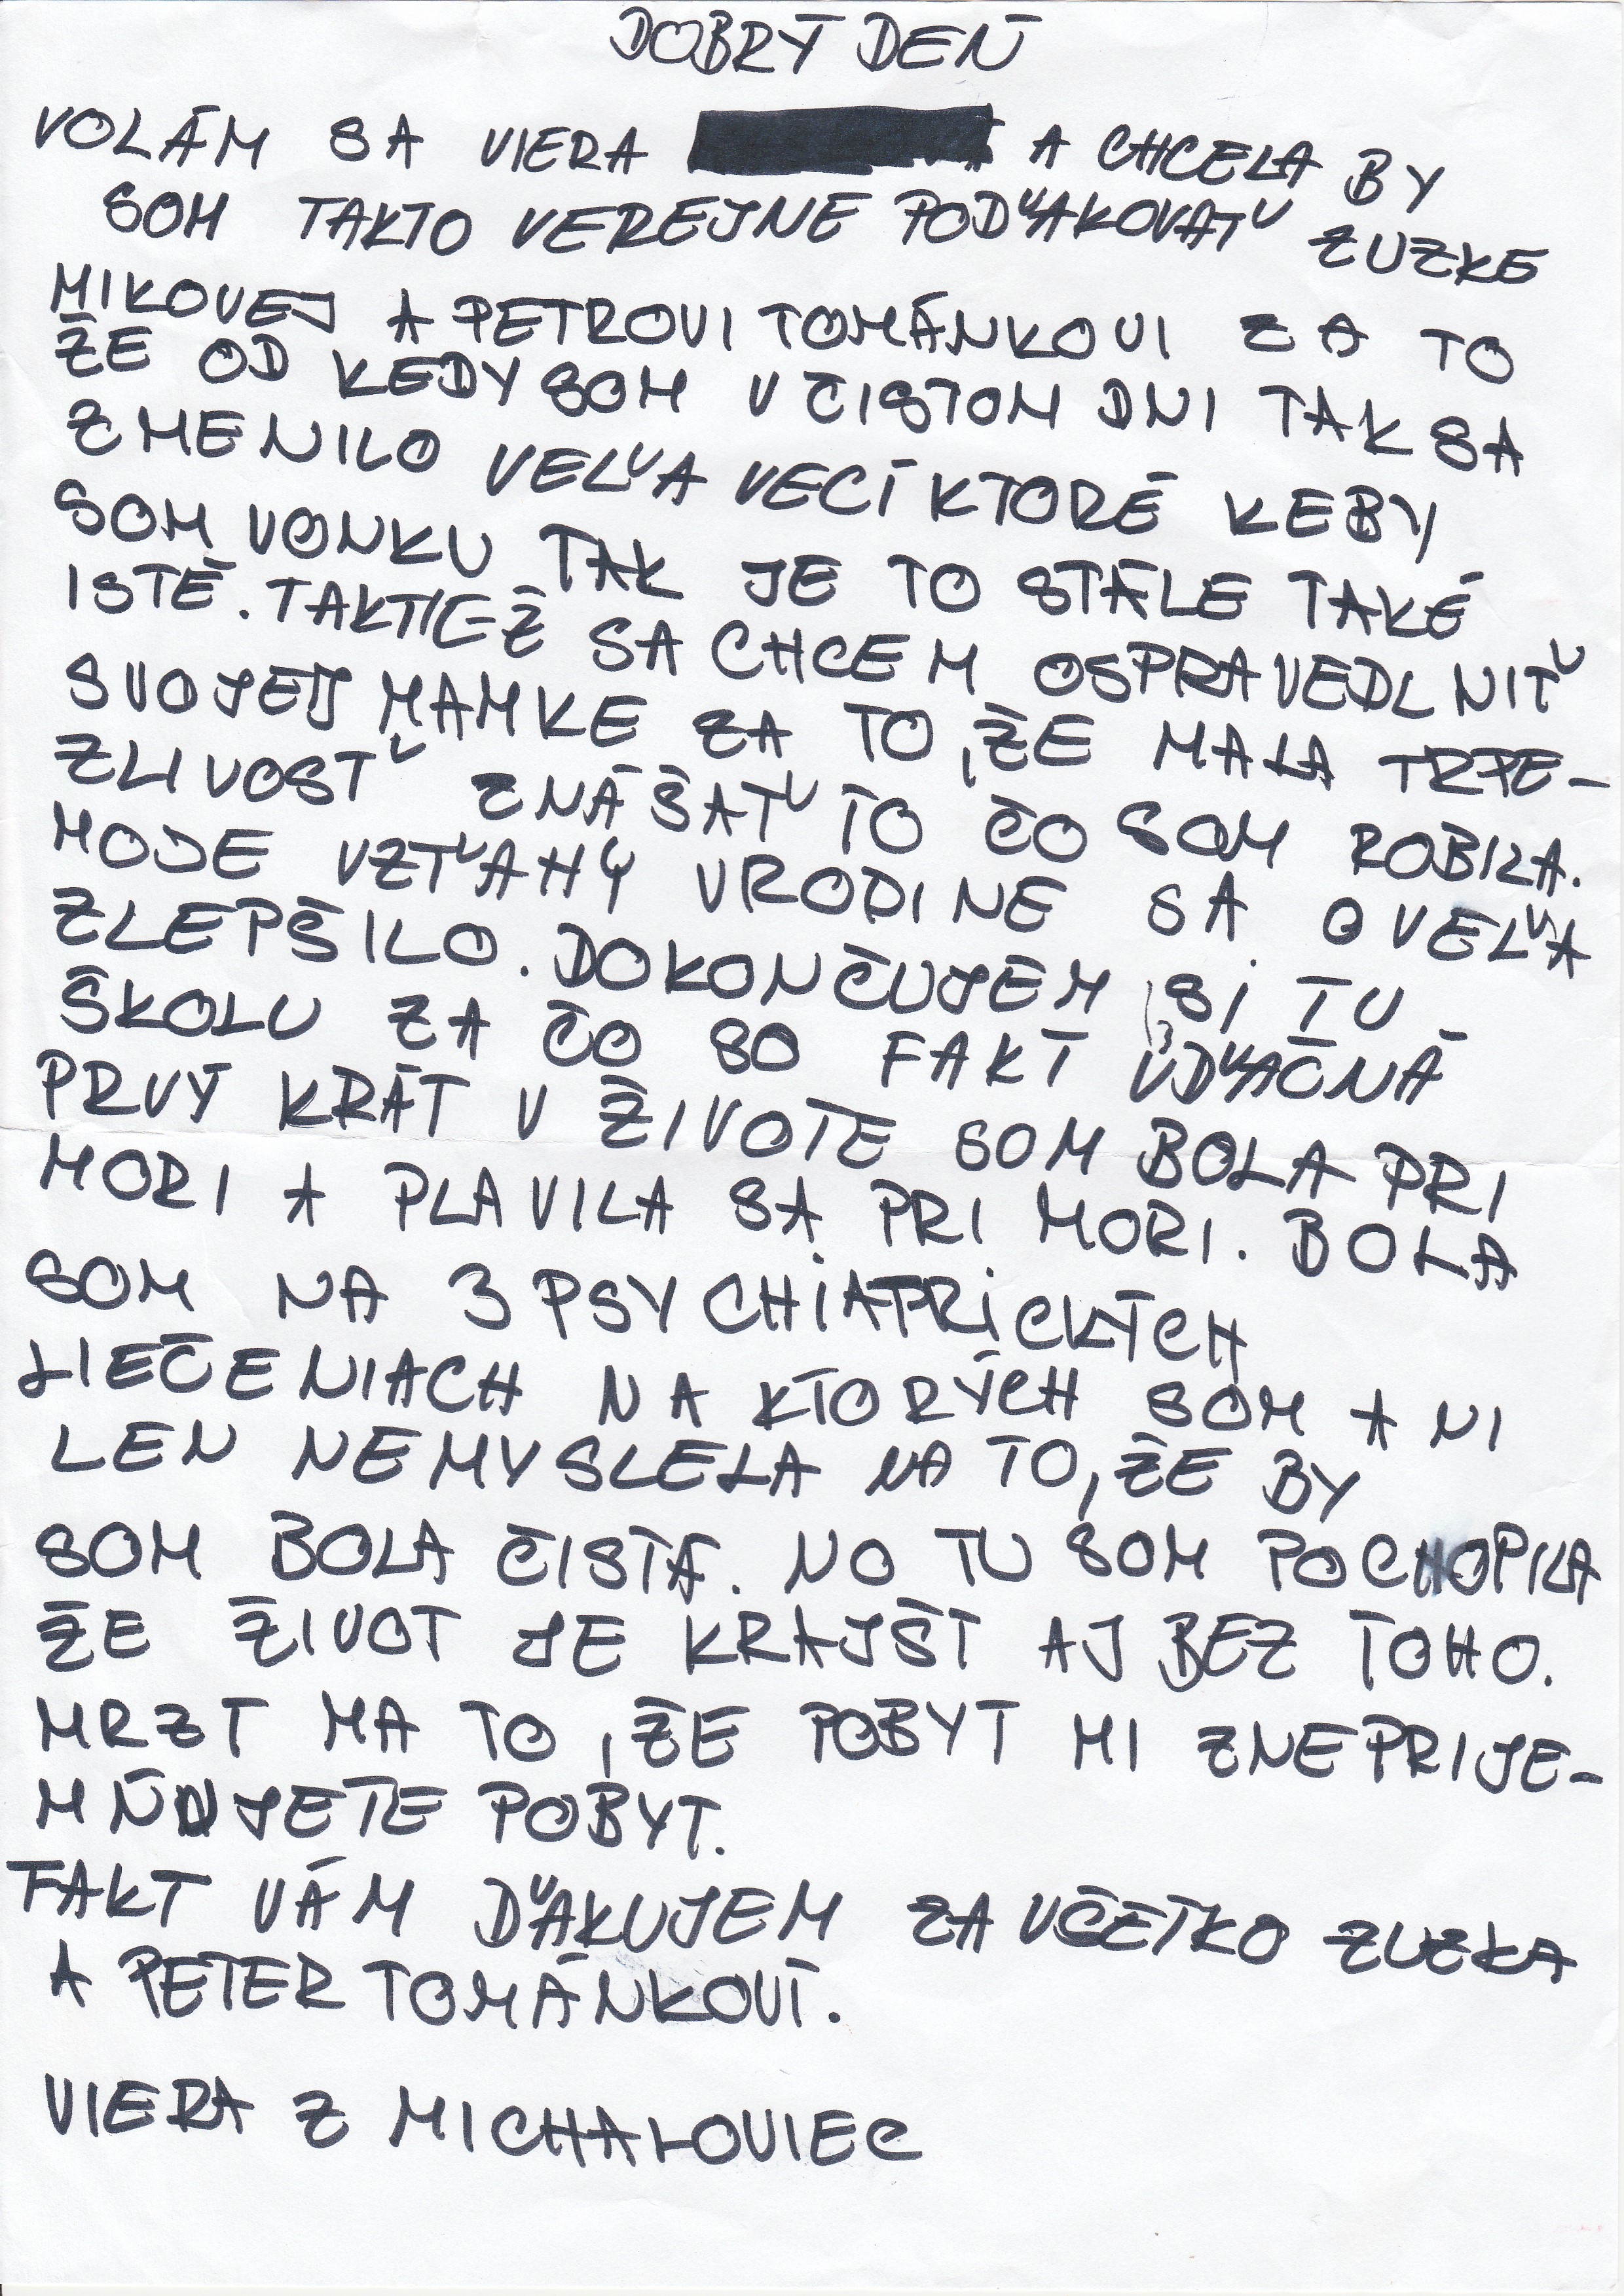 DOBRÝ DEŇ
VOLÁM SA VIERA A CHCELA BY
SOM TAKTO VEREJNE POĎAKOVAŤ ZUZKE
MIKOVEJ A PETROVI TOMÁNKOVI ZA TO
ŽE OD KEDY SOM V ČISTOM DNI TAK SA
ZMENILO VEĽA VECÍ KTORÉ KEBY
SOM VONKU TAK JE TO STÁLE TAKÉ
ISTÉ. TAKTIEŽ SA CHCEM OSPRAVEDLNIŤ
SVOJEJ MAMKE ZA TO, ŽE MALA TRPE-
ZLIVOSŤ ZNÁŠAŤ TO ČO SOM ROBILA.
MOJE VZŤAHY V RODINE SA O VEĽA
ZLEPŠILO. DOKONČUJEM SI TU
ŠKOLU ZA ČO SO FAKT VĎAČNÁ
PRVÝ KRÁT V ŽIVOTE SOM BOLA PRI
MORI A PLAVILA SA PRI MORI. BOLA
SOM NA 3 PSYCHIATRICKÝCH
LIEČENIACH NA KTORÝCH SOM A NI
LEN NEMYSLELA NA TO, ŽE BY
SOM BOLA ČISTÁ. NO TU SOM POCHOPILA
ŽE ŽIVOT JE KRAJŠÍ AJ BEZ TOHO.
MRZÍ MA TO, ŽE POBYT MI ZNEPRIJE-
MŇUJETE POBYT.
FAKT VÁM ĎAKUJEM ZA VČETKO ZUZKA
A PETER TOMÁNKOVÍ.
VIERA Z MICHALOVIEC